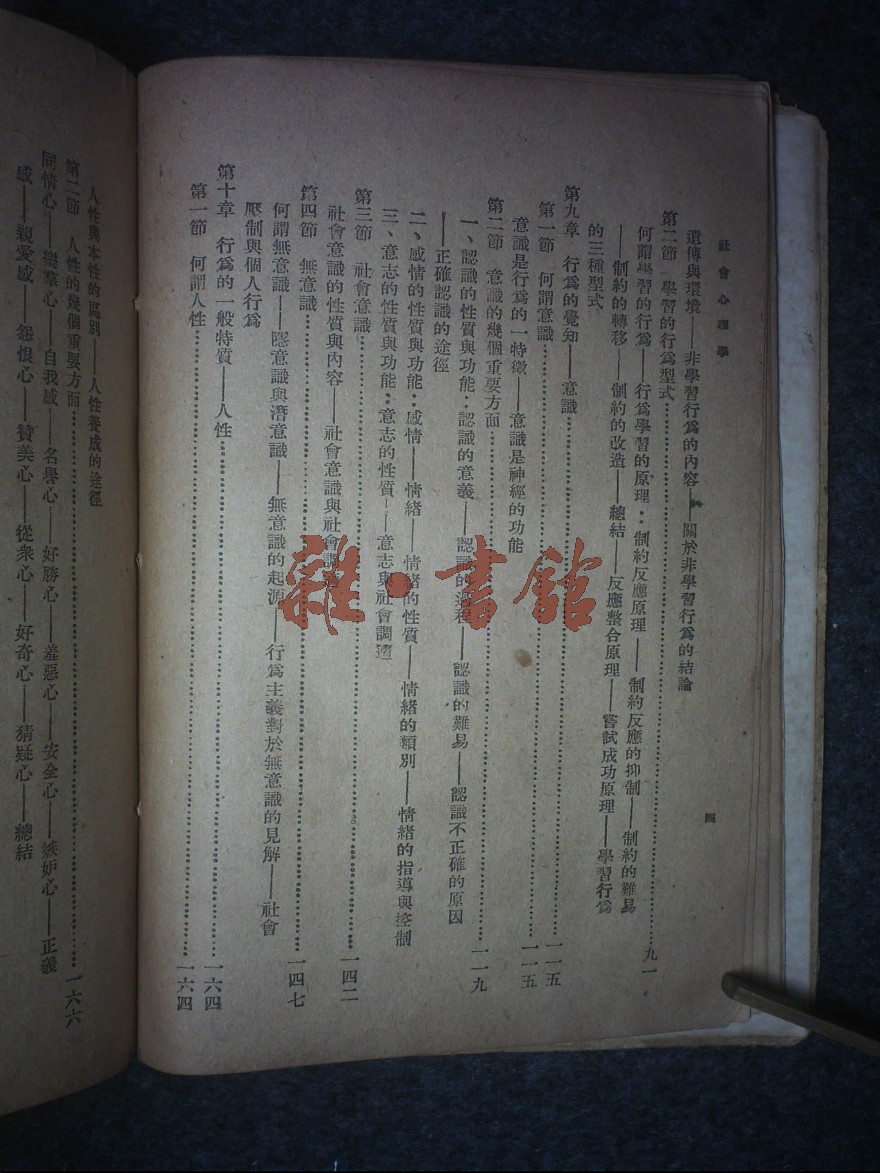 社會心理學
四
遺傳與環境——非學習行爲的內容——關於非學習行爲的結論
第二節 學習的行爲型式……九一
何謂學習的行爲——行爲學習的原理：制約反應原理——制約反應的抑制——制約的難易
——制約的轉移——制約的改造——總結——反應整合原理——嘗試成功原理——學習行爲
的三種型式
第九章 行爲的覺知——意識……一一五
第一節 何謂意識……一一五
意識是行爲的一特徵——意識是神經的功能
第二節 意識的幾個重要方面……一一九
一、認識的性質與功能：認識的意義——認識的過程——認識的難易——認識不正確的原因
——正確認識的途徑
二、感情的性質與功能：感情——情緒——情緒的性質——情緒的類別——情緒的指導與控制
三、意志的性質與功能：意志的性質——意志與社會調適
第三節 社會意識……一四二
社會意識的性質與內容——社會意識與社會調適
第四節 無意識……一四七
何謂無意識——隱意識與潛意識——無意識的起源——行爲主義對於無意識的見解——社會
壓制與個人行爲
第十章 行爲的一般特質——人性……一六四
第一節 何謂人性……一六四
人性與本性的區別——人性養成的途徑
第二節 人性的幾個重要方面……一六六
同情心——樂羣心——自我感——名譽心——好勝心——羞惡心——安全心——嫉妒心——正義
感——親愛感——怨恨心——贊美心——從衆心——好奇心——猜疑心——總結
雜·書館